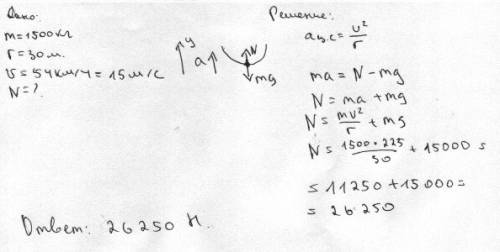 Дано:
m=1500кг
r=30м.
υ=54км/ч=15м/с
N=?
y
a
N
mg
Решение:
aц.с=υ²/r
ma=N-mg
N=ma+mg
N=mυ²/r+mg
N=1500·225/30+15000=
=11250+15000=
=26250
Ответ: 26250 Н.